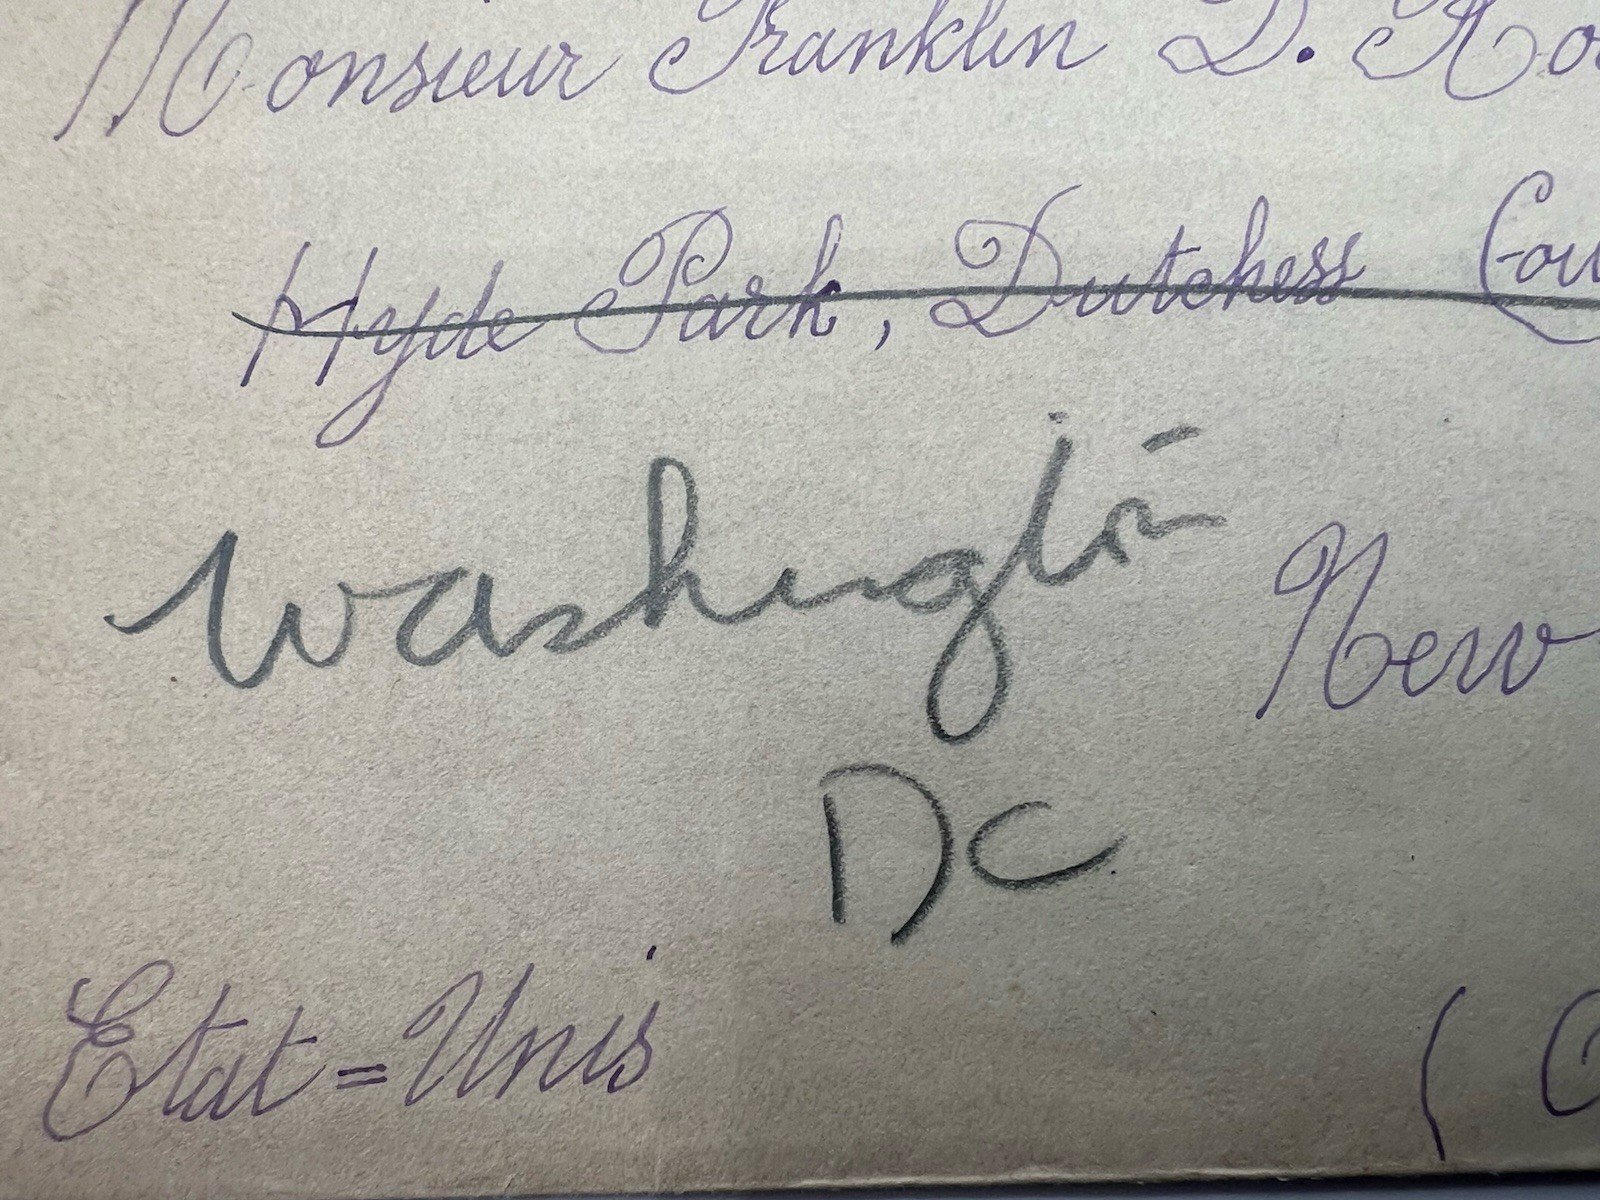 Monsieur Franklin D. Roo
Hyde Park, Dutchess Cou
Washington
New
DC
Etat=Unis
(